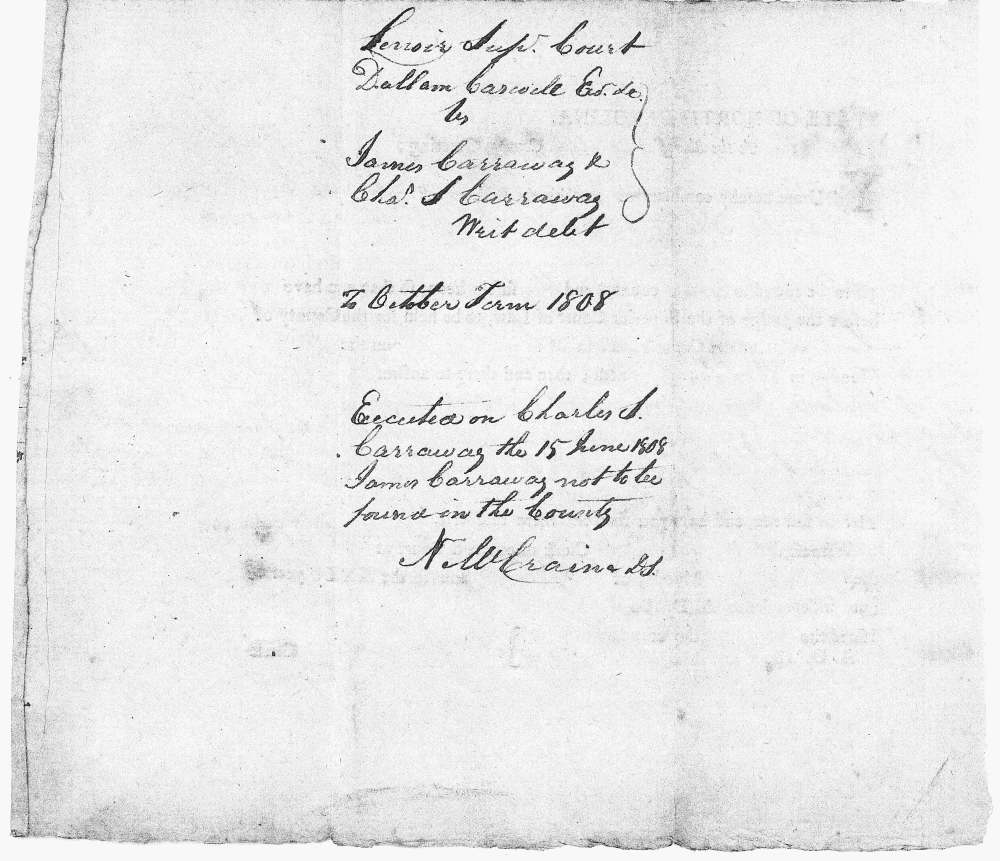 Lenoir Supr. Court
Dallam Caswell Exr. &c.
vs
James Carraway &
Chas. S Carraway
Writ debt
To October Term 1808
Executed on Charles S.
Carraway the 15 June 1808
James Carraway not to be
found in the County
N. McCraine DS.